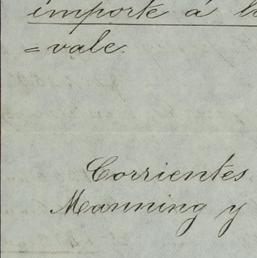 importe á
=vale.
Corrientes
Manning y